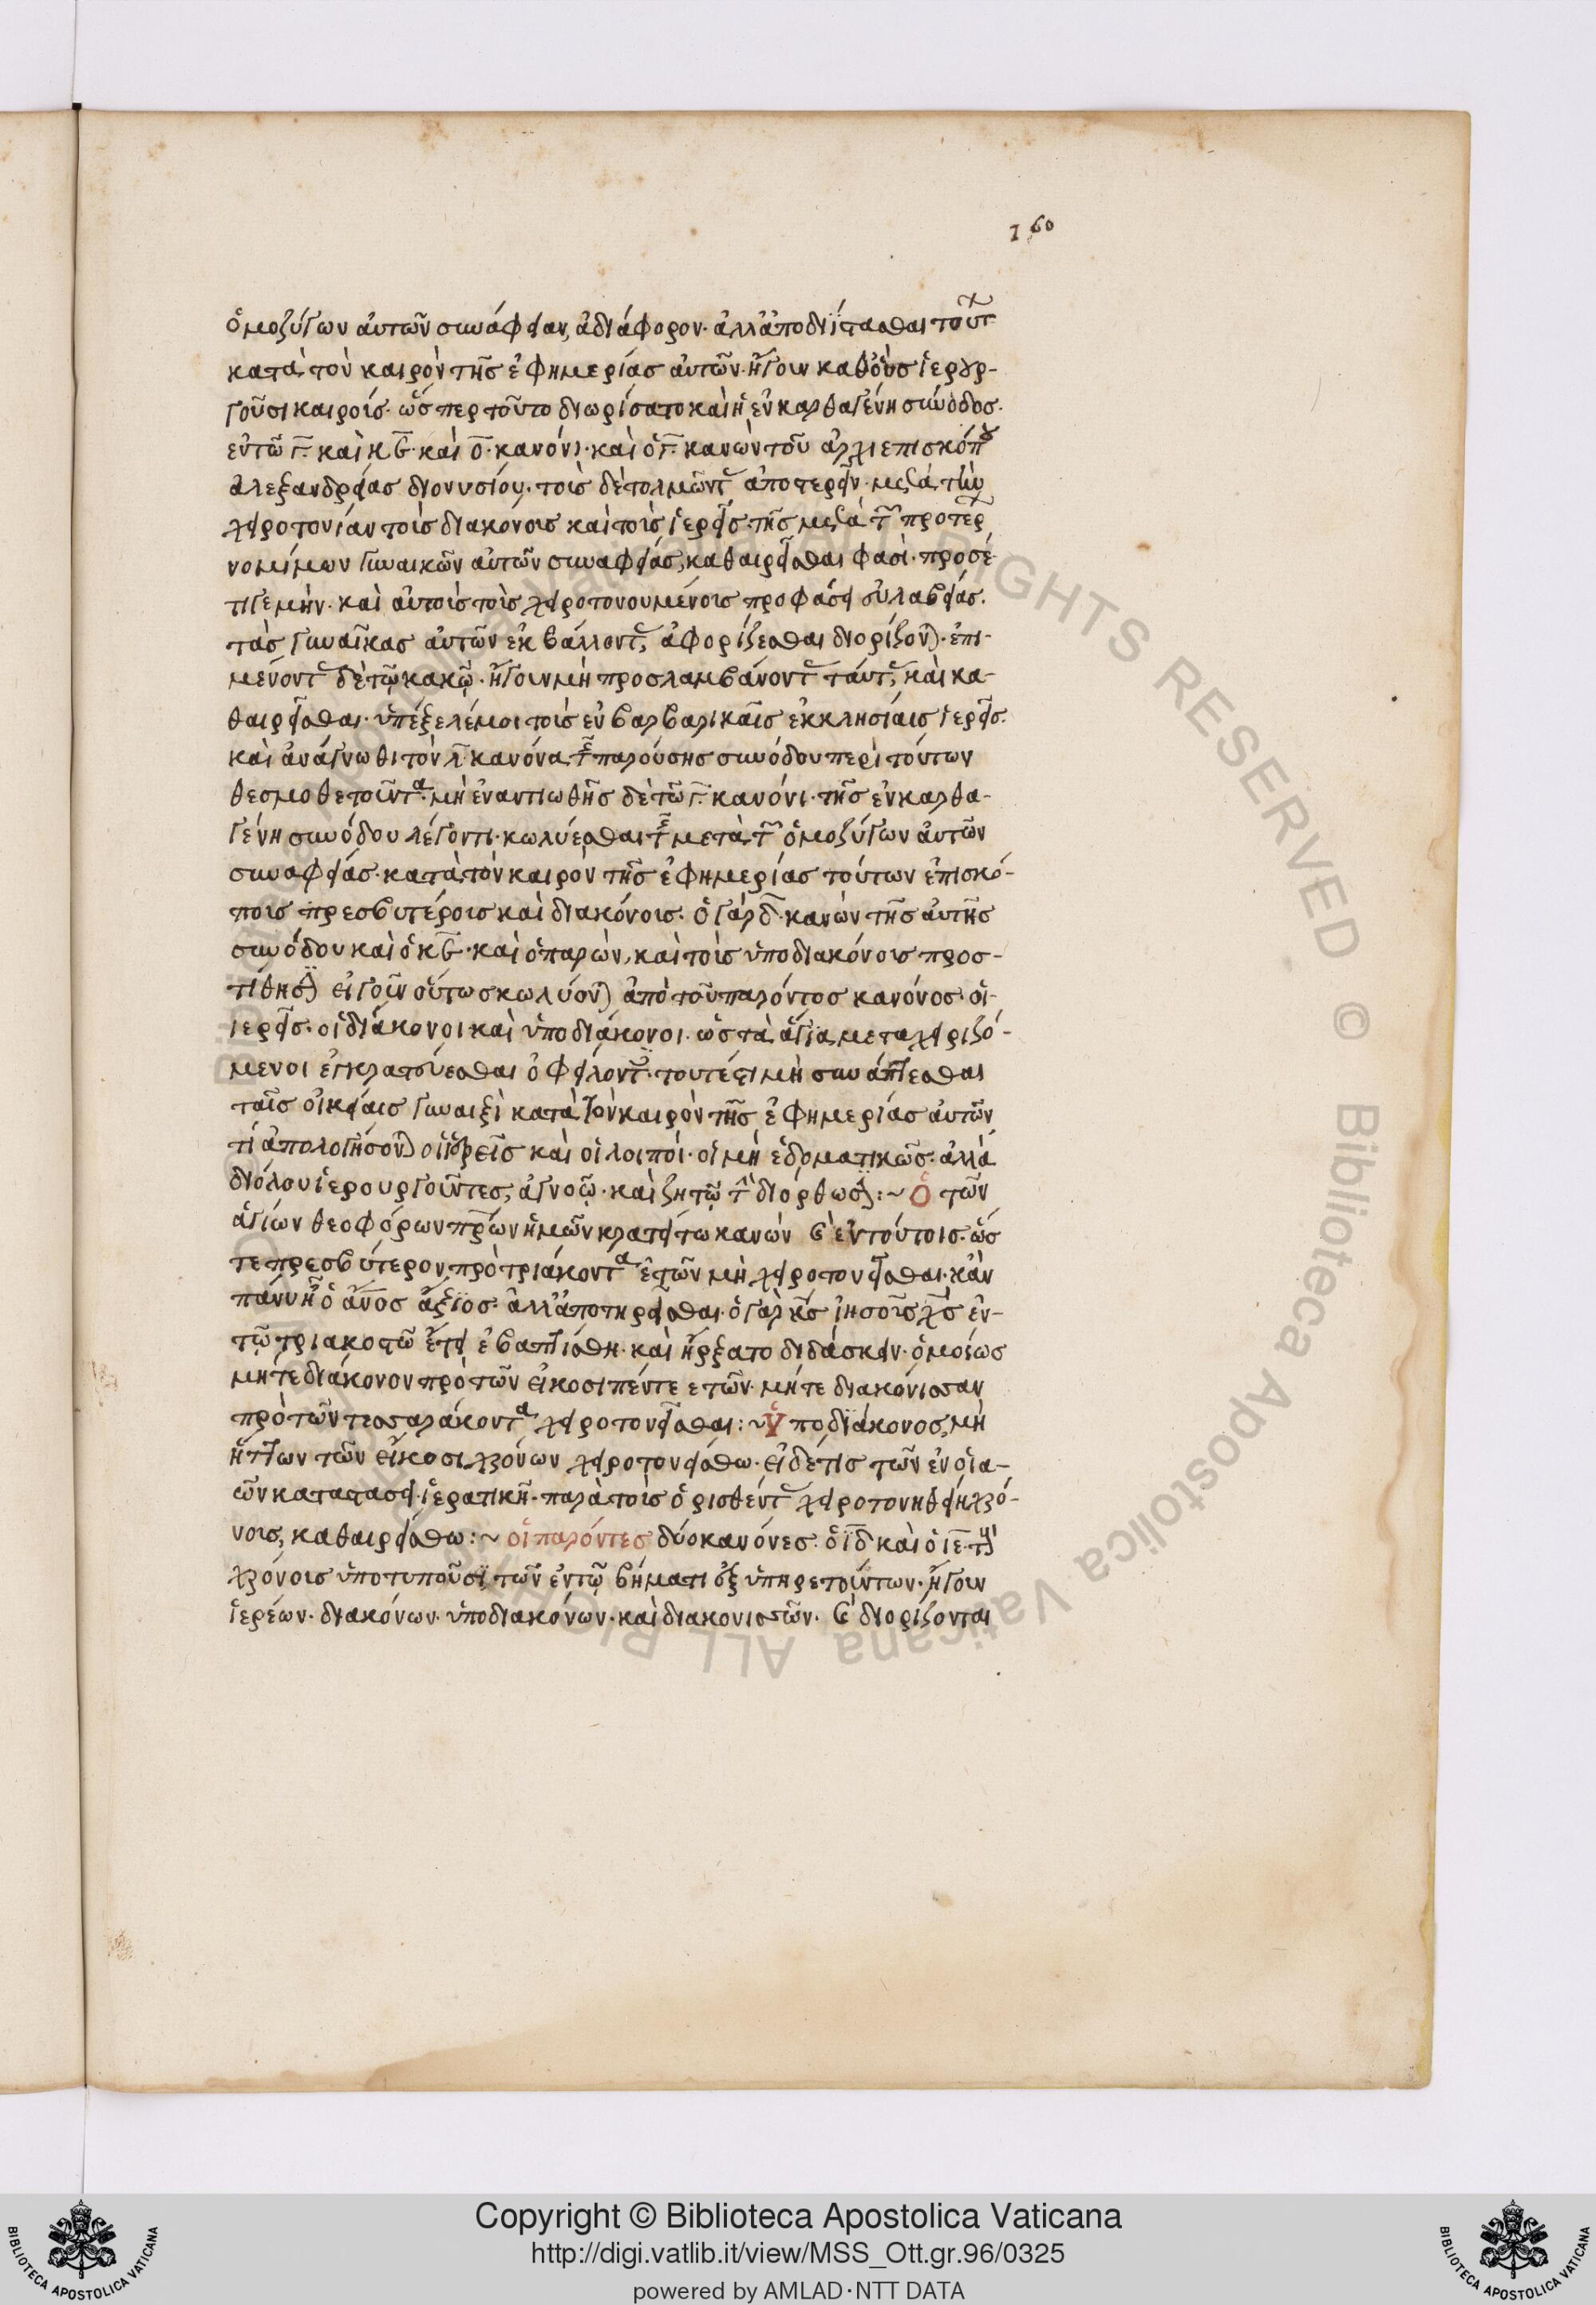 160
ὁμοζύγων αὐτῶν συνάφειαν, ἀδιάφορον· ἀλλ' ἀποδιΐστασθαι τούτ
κατὰ τὸν καιρὸν τῆς ἐφημερίας αὐτῶν· ἤγουν καθ' οὓς ἱερουρ-
γοῦσι καιροῖς· ὥσπερ τοῦτο διωρίσατο καὶ ἡ ἐν καρθαγένη σύνοδος·
ἐν τῶ γ̅· καὶ κε̅· καὶ ο̅· κανόνι· καὶ ὁ γ̅· κανὼν τοῦ ἀρχιεπισκόπου
ἀλεξανδρείας διονυσίου· τοῖς δὲ τολμῶντ ἀποτερεῖν· μετὰ τὴν
χειροτονίαν τοῖς διακόνοις καὶ τοῖς ἱερεῦσ· τῆς μετὰ τ προτερ
νομίμων γυναικῶν αὐτῶν συναφείας, καθαιρεῖσθαι φασὶ· προσέ
τι γε μὴν· καὶ αὐτοῖς τοῖς χειροτονουμένοις προφάσει εὐλαβείας·
τὰς γυναῖκας αὐτῶν ἐκβάλλοντ, ἀφορίζεσθαι διορίζον)· ἐπι-
μένοντ δὲ τῷ κακῷ· ἤγουν μὴ προσλαμβάνοντ ταύτ, καὶ κα-
θαιρεῖσθαι· ὑπέξελέ μοι τοῖς ἐν βαρβαρικαῖς ἐκκλησίαις ἱερεῖς·
καὶ ἀνάγνωθι τὸν λ̅ κανόνα τ παρούσης συνόδου περὶ τούτων
θεσμοθετοῦντα· μὴ ἐναντιωθῆς δὲ τῶ γ̅· κανόνι· τῆς ἐν καρθα-
γένη συνόδου λέγοντι· κωλύεσθαι τ μετὰ τ ὁμοζύγων αὐτῶν
συναφείας· κατὰ τὸν καιρὸν τῆς ἐφημερίας τούτων ἐπισκό-
ποις πρεσβυτέροις καὶ διακόνοις· ὁ γὰρ δ̅· κανὼν τῆς αὐτῆς
συνόδου καὶ ὁ κε̅· καὶ ὁ παρὼν, καὶ τοῖς ὑποδιακόνοις προσ-
τίθησ) εἰ γοῦν οὕτως κωλύον) ἀπὸ τοῦ παρόντος κανόνος· οἱ
ἱερεῖς· οἱ διάκονοι καὶ ὑποδιάκονοι· ὡς τὰ ἅγια μεταχειριζό-
μενοι ἐγκρατεύεσθαι ὀφείλοντ· τουτέστι μὴ συνάπτεσθαι
ταῖς οἰκείαις γυναιξὶ κατὰ τὸν καιρὸν τῆς ἐφημερίας αὐτῶν,
τί ἀπολογήσον) οἱ ἱερεῖς καὶ οἱ λοιποὶ· οἱ μὴ ἑβδοματικῶς· ἀλλὰ
διόλου ἱερουργοῦντες, ἀγνοῶ· καὶ ζητῶ τ διόρθωσ):~ Ὁ τῶν
ἁγίων θεοφόρων πρ̅ων ἡμῶν κρατείτω κανὼν ϛ ἐν τούτοις· ὥσ
τε πρεσβύτερον πρὸ τριάκοντα ἐτῶν μὴ χειροτονεῖσθαι· κἂν
πάνυ ἦ ὁ ἄν̅ος ἄξιος· ἀλλ' ἀποτηρεῖσθαι· ὁ γὰρ κ̅ς ἰησοῦς χ̅ς ἐν
τῶ τριακοστῶ ἔτει ἐβαπτίσθη· καὶ ἤρξατο διδάσκειν· ὁμοίως
μήτε διάκονον πρὸ τῶν εἰκοσιπέντε ἐτῶν· μήτε διακόνισσαν
πρὸ τῶν τεσσαράκοντα χειροτονεῖσθαι:~ Ὑποδιάκονος, μὴ
ἧττων τῶν εἴκοσι χρόνων χειροτονείσθω· εἰ δέ τις τῶν ἐν οἱα-
ῶν καταστασει· ἱερατικῆ· παρὰ τοῖς ὁρισθέντ χειροτονηθείη χρό-
νοις, καθαιρείσθω:~ οἱ παρόντες δύο κανόνες· ὁ ι̅δ̅ καὶ ὁ ι̅ε̅
χρόνοις ὑποτυποῦσι, τῶν ἐν τῷ βήματι ὑπηρετούντων· ἤγουν
ἱερέων· διακόνων· ὑποδιακόνων· καὶ διακονισσῶν· ϛ διορίζονται
Copyright © Biblioteca Apostolica Vaticana
http://digi.vatlib.it/view/MSS_Ott.gr.96/0325
powered by AMLAD·NTT DATA
BIBLIOTECA APOSTOLICA VATICANA
BIBLIOTECA APOSTOLICA VATICANA